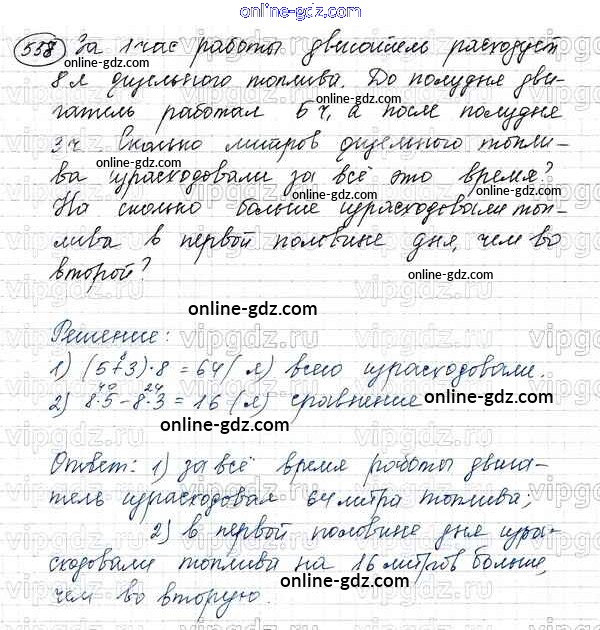 online-gdz.com
558 За 1 час работы двигатель расходует
8 л дизельного топлива. До полудня дви-
гатель работал 5 ч, а после полудня
3 ч. Сколько литров дизельного топли-
ва израсходовали за всё это время?
На сколько больше израсходовали топ-
лива в первой половине дня, чем во
второй?
online-gdz.com
Решение:
1) (5+3)·8 = 64 (л) всего израсходовали.
8
40 24
2) 8·5 - 8·3 = 16 (л) сравнение
online-gdz.com
Ответ: 1) за всё время работы двига-
тель израсходовал 64 литра топлива;
2) в первой половине дня изра-
сходовали топлива на 16 литров больше,
чем во вторую.
online-gdz.com
vipgdz.ru